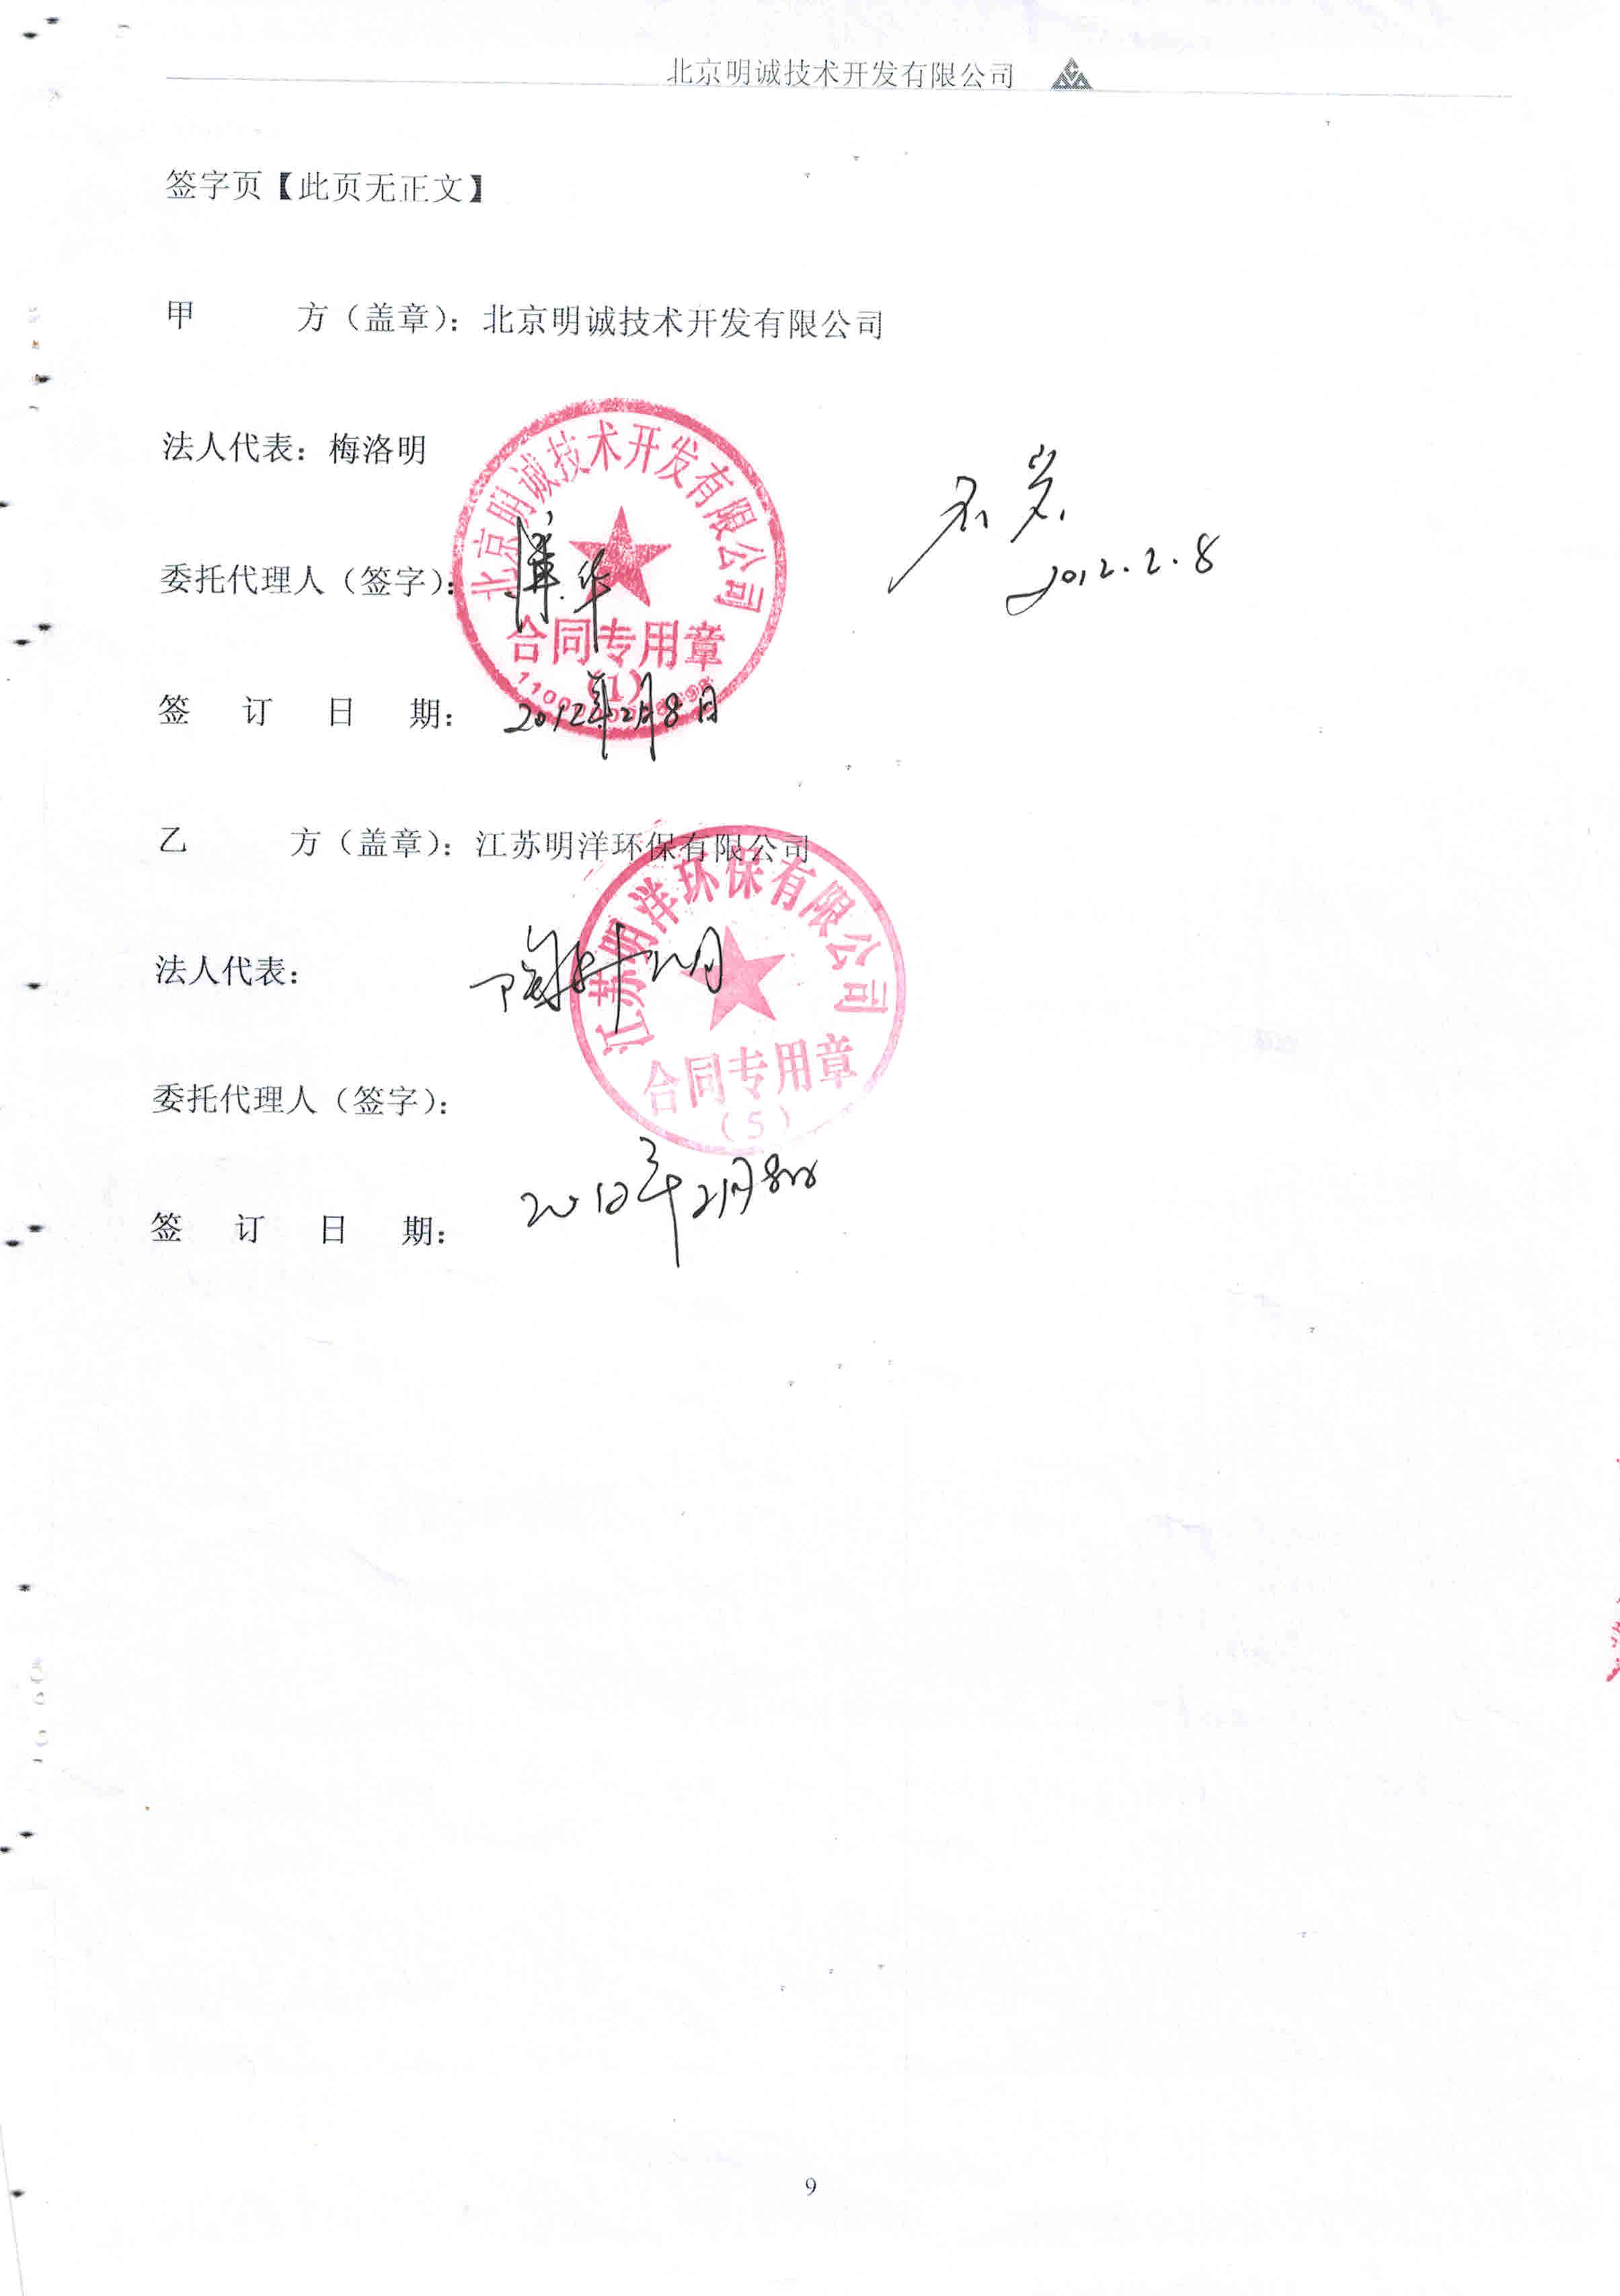 北京明诚技术开发有限公司
签字页【此页无正文】
甲 方（盖章）：北京明诚技术开发有限公司
法人代表：梅洛明
北京明诚技术开发有限公司
2012.2.8
委托代理人（签字）：
合同专用章
（1）
签 订 日 期： 2012年2月8日
乙 方（盖章）：江苏明洋环保有限公司
江苏明洋环保有限公司
法人代表：
合同专用章
（5）
委托代理人（签字）：
签 订 日 期： 2012年2月8日
9